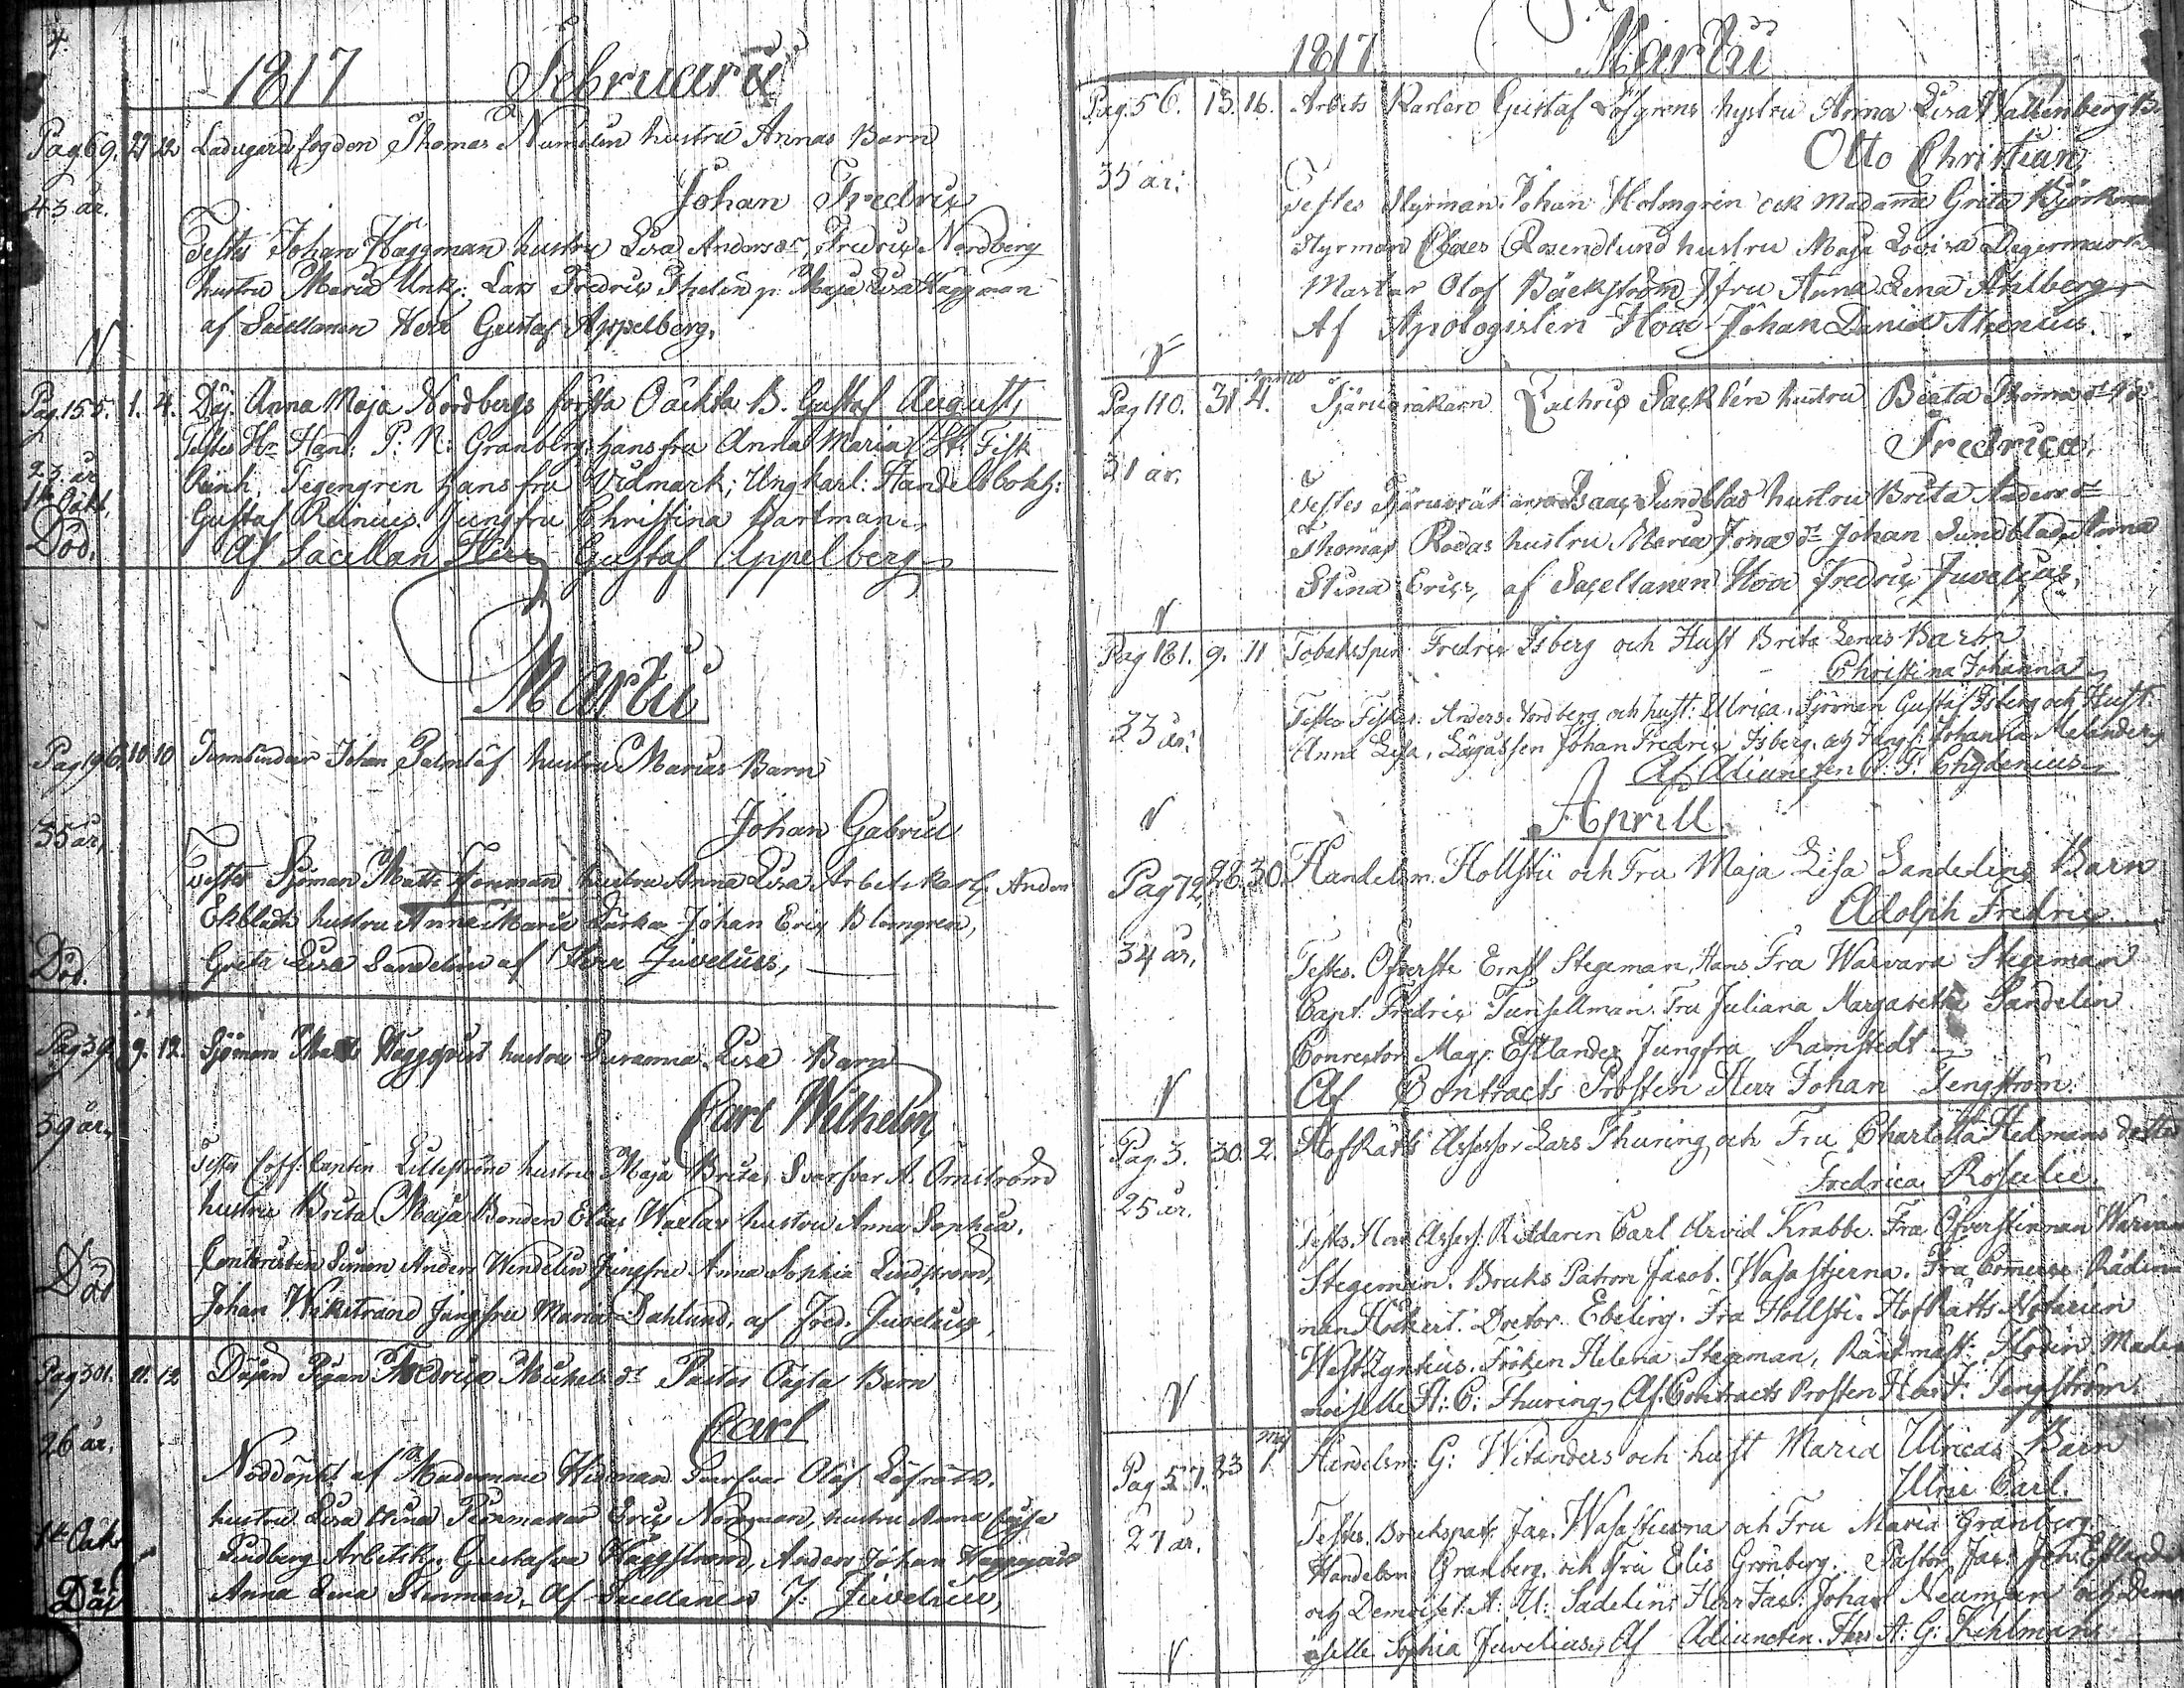 4.
1817 Februarii
Pag. 69. 22 Ladugårds fogden Thomas hustru Annas Barn
43 år. Johan Fredric
Testes Johan Häggman hustru Lisa Andersdr, Fredric Nordberg
hustru Maria Lars Fredric Thelin p. Maja Lisa Häggman
af Sacellanen Herr Gustaf Appelberg.
Pag. 155. 1. 4. Däj. Anna Maja Nordbergs första Oäckta B. Gustaf August,
Testes Hr Han: P: N: Granberg, hans fru Anna Maria St. Fisk
23 år Tegengren hans fru Widmark; Ungkarl: Handelsbokh:
1st Oäkt. Gustaf Reinius. Jungfru Christina Hartman.
Död. Af Sacellan Herr Gustaf Appelberg
Martii
Pag. 196. 10 10 Tunnbindar Johan hustru Marias Barn
35 år, Johan Gabriel
Testes Sjöman Matts Foreman hustru Anna Lisa, Arbetskarl Anders
Ekblads hustru Anna Maria Johan Eric Blomgren,
Död. Greta Lisa Sandelin af Herr Juvelius,
Pag 39. 9. 12. Sjöman Matts Häggqvist hustru Susanna Lisa Barn
39 år. Carl Wilhelm
Testes Coff: Capten Lilleström hustru Maja Brita, Svarfvar A. Örnström
hustru Brita Maja Bonden Elias hustru Anna Sophia.
Simon Anders Wendelin Jungfru Anna Sophia Lindström,
Död Johan Wikstrand Jungfru Maria Dahlund, af Fred. Juvelius,
Pag 301. 11. 12 Pigan Fredrica Michelsdr Oägta Barn
26 år. Carl
Nöddöpt af Madamme Widman Svarfvar Olof Löfroth.
hustru Lisa Stina Eric Norrman, hustru Anna Cajsa
1st Oäkt Lindberg Arbetsk. Gustafva Häggström, Anders Johan Häggqvist
Död Anna Lena Stenman, Af Sacellanen J: Juvelius,
1817 Martii
Pag. 56. 13. 16. Arbets Karlen Gustaf Löfgrens hustru Anna Lisa Wallenberg B.
Otto Christian.
35 år. Testes Styrman Johan Holmgren och Madamme Greta Björkman
Styrman Claes Rosendlund hustru Maja Lovisa Degermark
Mästar Olof Bäckström Jfru Anna Lena Ahlberg
Af Apologisten Herr Johan Daniel Alcenius.
Pag 110. 31 4. Tjäruvräkarn Zachris Sacklén hustru Beata Thomædr
Fredrica,
31 år. Testes Tjäruvräkaren Isaac Sundblad hustru Brita Andersdr
Thomas Rodas hustru Maria Jonasdr Johan Sundblad, Anna
Stina Erics, af Sacellanen Herr Fredric Juvelius,
Pag 181. 9. 11 Tobaks Spin Fredric Isberg och Hust Brita Lenas Barn
Christina Johanna
33 år. Testes Fisk: Anders Nordberg och hust: Ulrica. Sjöman Gustaf Isberg och Hust:
Anna Lisa, Johan Fredric Isberg, och Jungf: Johanna Melander
Af Adiuncten A: F: Chydenius
Aprill
Pag 72. 28. 30. Handelsm. Hollsti och Fru Maja Lisa Sandelins Barn
Adolph Fredric
34 år, Testes. Öfverste Ernst Stegeman, Hans Fru Warvara Stegeman
Capt. Fredric Tunsellman. Fru Juliana Margaretha Sandelin
Conrector Magr Estlander Jungfru Ramstedt
Af Contracts Prosten Herr Johan Tengström.
Pag. 3. 30. 2. Hof Rätts Assessor Lars Thuring och Fru Charlotta Hedmans dotter
Fredrica Rosalie.
25 år. Testes. Herr Assess: Riddaren Carl Arvid Krabbe. Fru Öfverstinnan Warvara
Stegeman. Bruks Patron Jacob. Wasastjerna. Fru Commerse Rådin
nan Höckert. Doctor Ebeling. Fru Hollsti. Hof Rätts Notarien
West Zyntius. Fröken Helena Stegeman, Räntmäst: Flodin. Made
moiselle H: C: Thuring, Af Contracts Prosten Herr J: Tengström.
Pag 57. 23 Maj 1 Handelsm: G: Witanders och hust Maria Ulricas Barn
Ulric Carl.
27 år. Testes. Brukspatr Jac. Wasastierna och Fru Maria Granberg.
Handelsm Granberg och Fru Elis Grönberg. Pastor Jac: Joh: Estlander
och Demoisel: A: U: Sadelin, Herr Jac: Johan Neuman och Demo
iselle Sophia Juvelius, Af Adiuncten. Herr A: G: Kehlman.